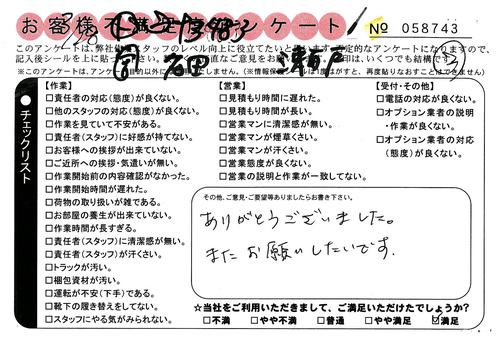 お客様不満足度アンケート
№ 058743
※このアンケートは
チェックリスト
【作業】
□責任者の対応(態度)が良くない。
□他のスタッフの対応(態度)が良くない。
□作業を見ていて不安がある。
□責任者(スタッフ)に好感が持てない。
□お客様への挨拶が出来ていない。
□ご近所への挨拶・気遣いが無い。
□作業開始前の内容確認がなかった。
□作業開始時間が遅れた。
□荷物の取り扱いが雑である。
□お部屋の養生が出来ていない。
□作業時間が長すぎる。
□責任者(スタッフ)に清潔感が無い。
□責任者(スタッフ)が汗くさい。
□トラックが汚い。
□梱包資材が汚い。
□運転が不安(下手)である。
□靴下の履き替えをしてない。
□スタッフにやる気がみられない。
【営業】
□見積もり時間に遅れた。
□見積もり時間が長い。
□営業マンに清潔感が無い。
□営業マンが煙草くさい。
□営業マンが汗くさい。
□営業態度が良くない。
□営業の説明と作業が一致してない。
【受付・その他】
□電話の対応が良くない。
□オプション業者の説明
・作業が良くない。
□オプション業者の対応
(態度)が良くない。
その他、ご意見・ご要望等ありましたらお書き下さい。
ありがとうございました。
またお願いしたいです。
☆当社をご利用いただきまして、ご満足いただけたでしょうか?
□不満 □やや不満 □普通 □やや満足 ☑満足